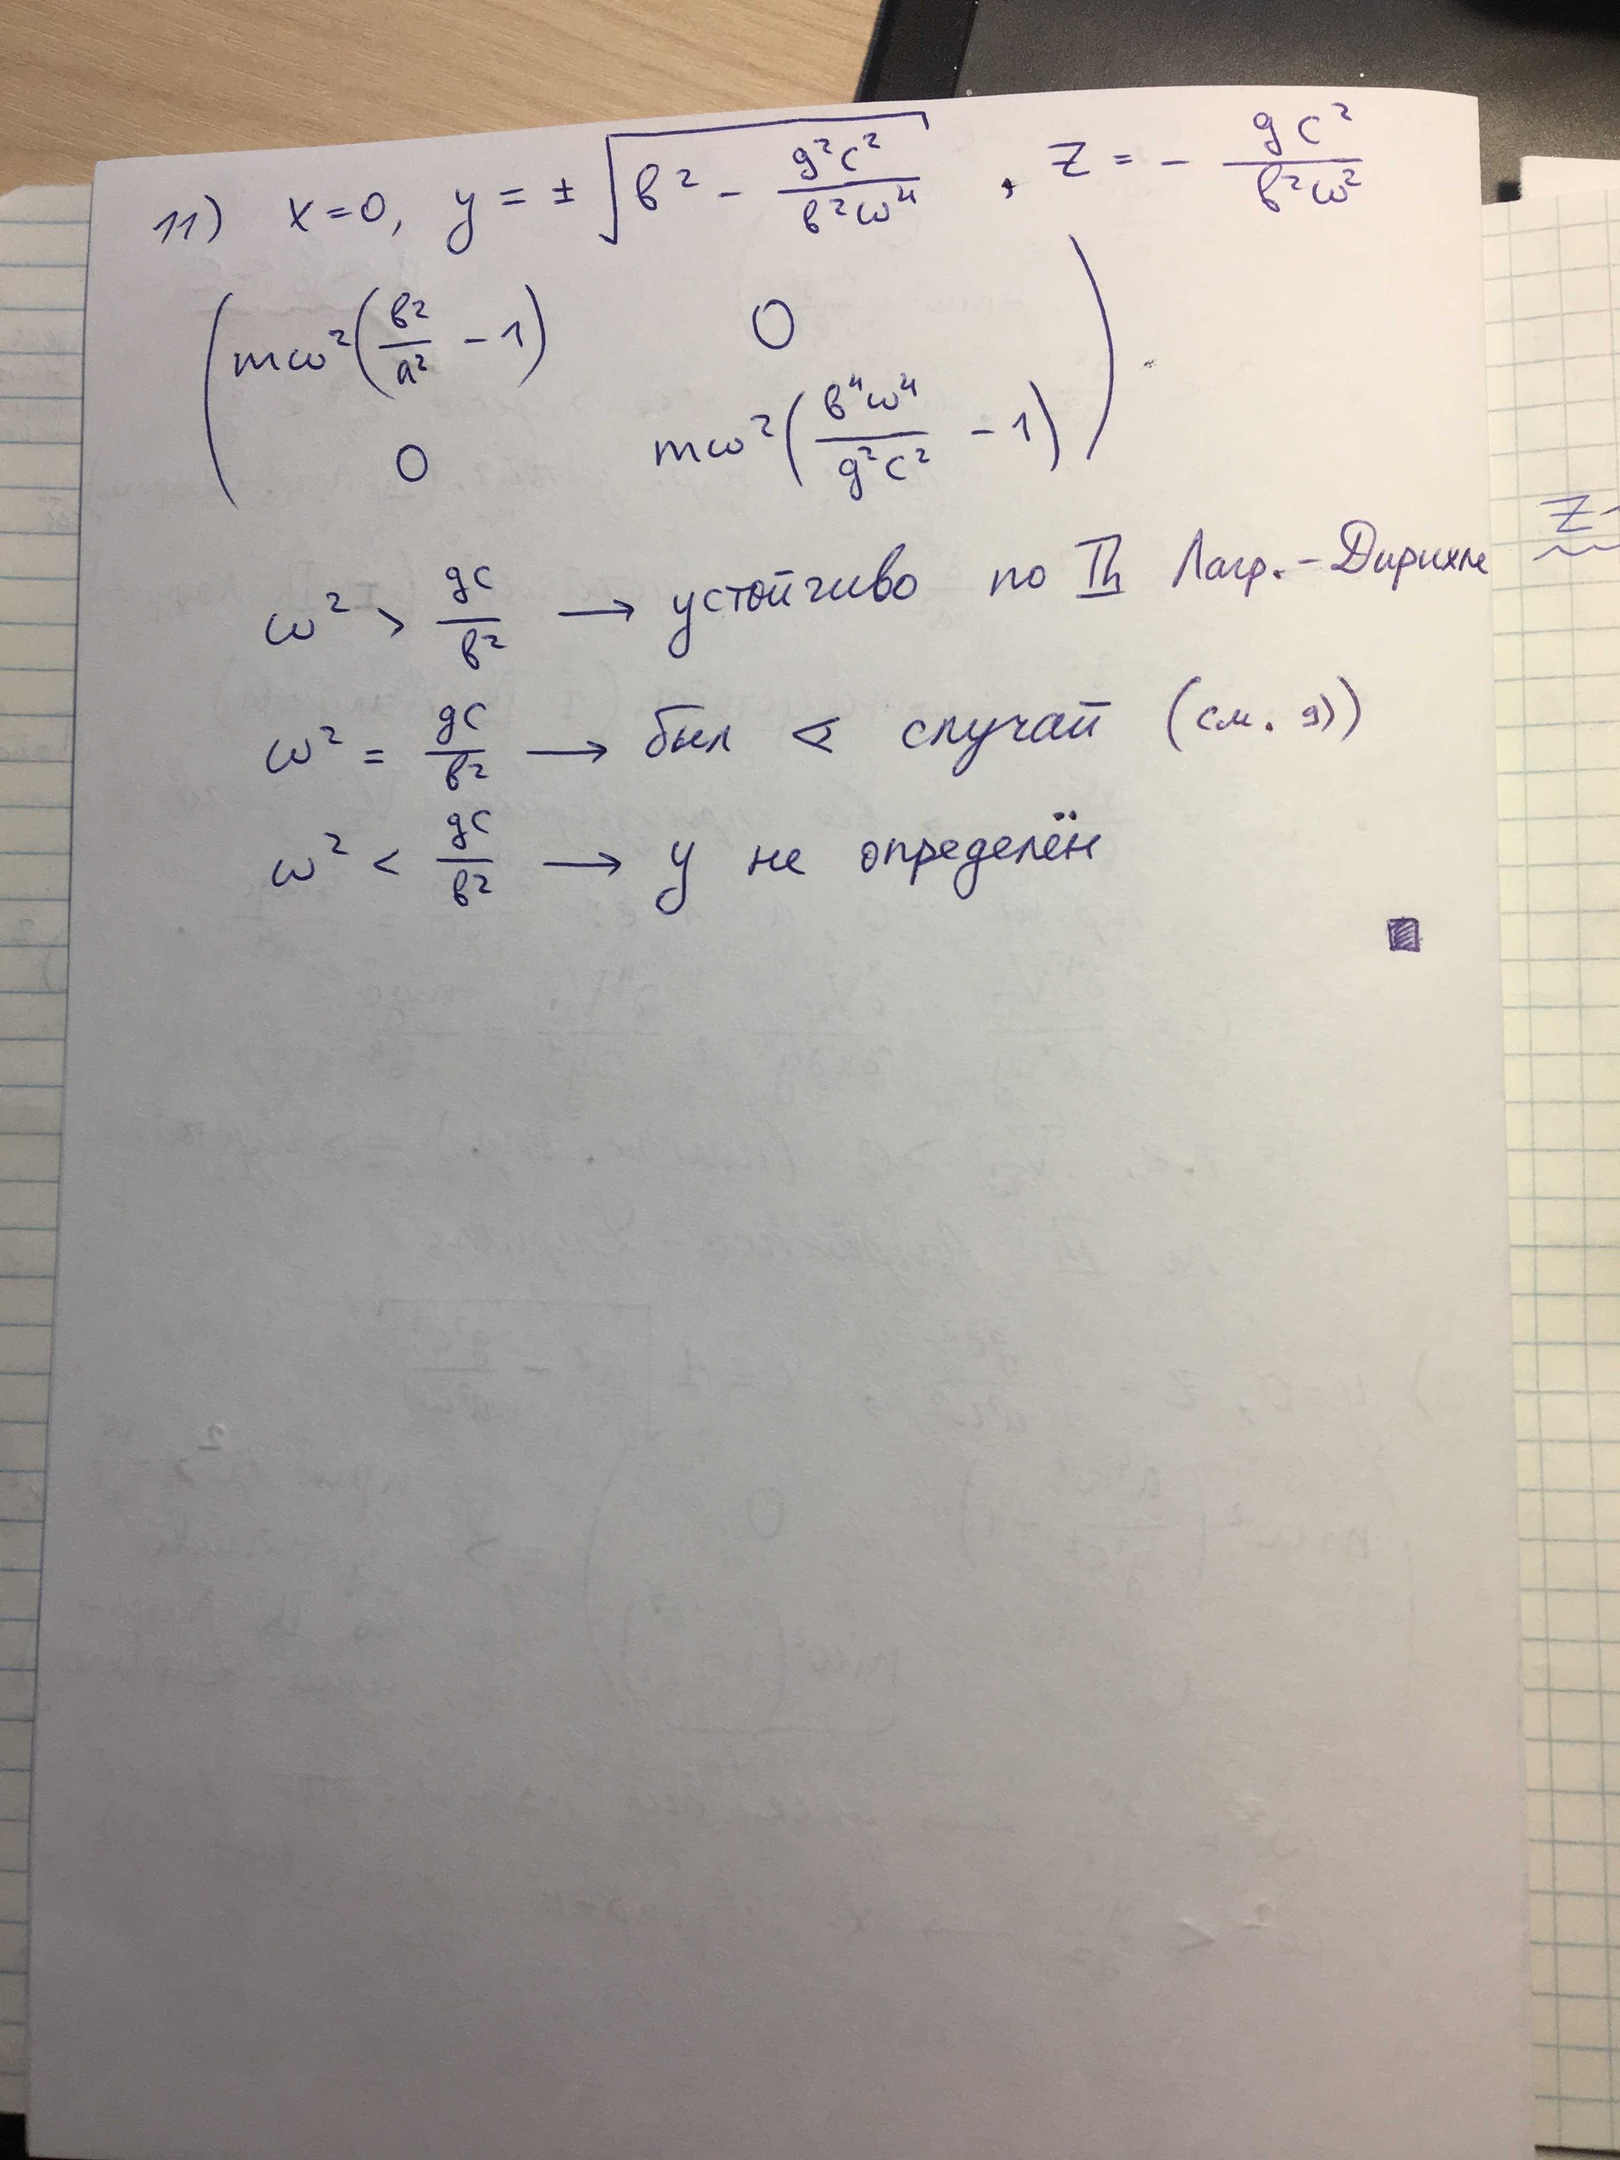 11) x=0, y = ± √(b² - g²c²/b²ω⁴) , z = - gc²/b²ω²
( mω²(b²/a² - 1) 0
0 mω²(b⁴ω⁴/g²c² - 1) )
ω² > gc/b² → устойчиво по Th Лагр.-Дирихле
ω² = gc/b² → был случай (см. 9))
ω² < gc/b² → y не определён
Z